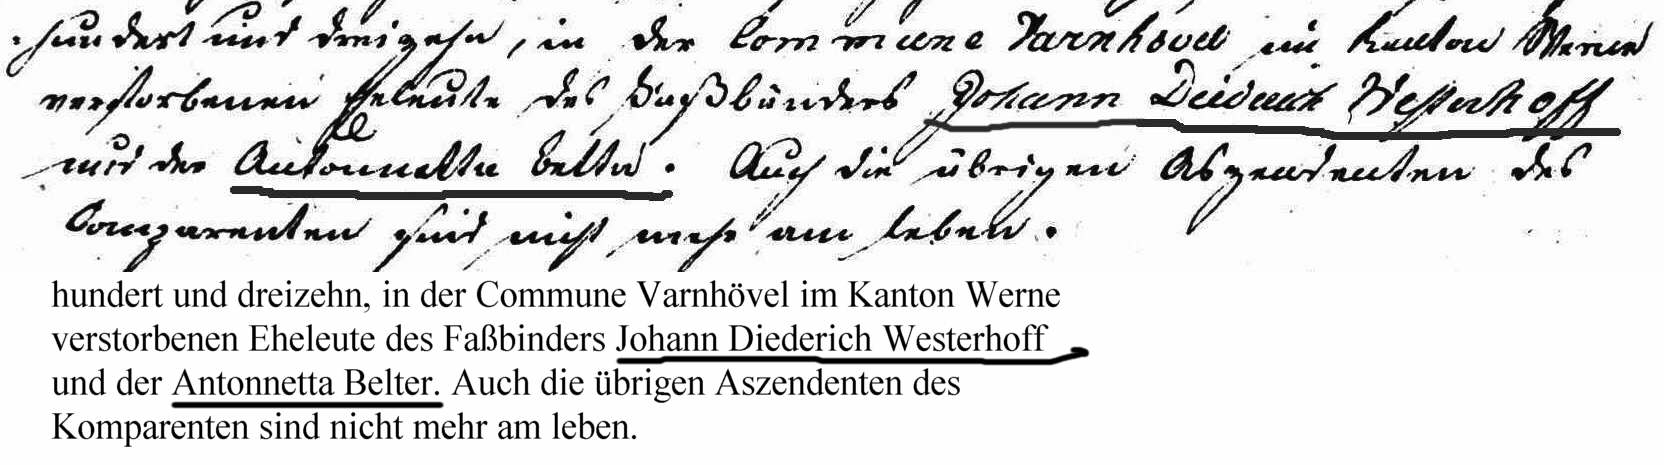 hundert und dreizehn, in der Commune Varnhövel im Kanton Werne
verstorbenen Eheleute des Faßbinders Johann Diederich Westerhoff
und der Antonnetta Belter. Auch die übrigen Aszendenten des
Comparenten sind nicht mehr am leben.
hundert und dreizehn, in der Commune Varnhövel im Kanton Werne
verstorbenen Eheleute des Faßbinders Johann Diederich Westerhoff
und der Antonnetta Belter. Auch die übrigen Aszendenten des
Komparenten sind nicht mehr am leben.